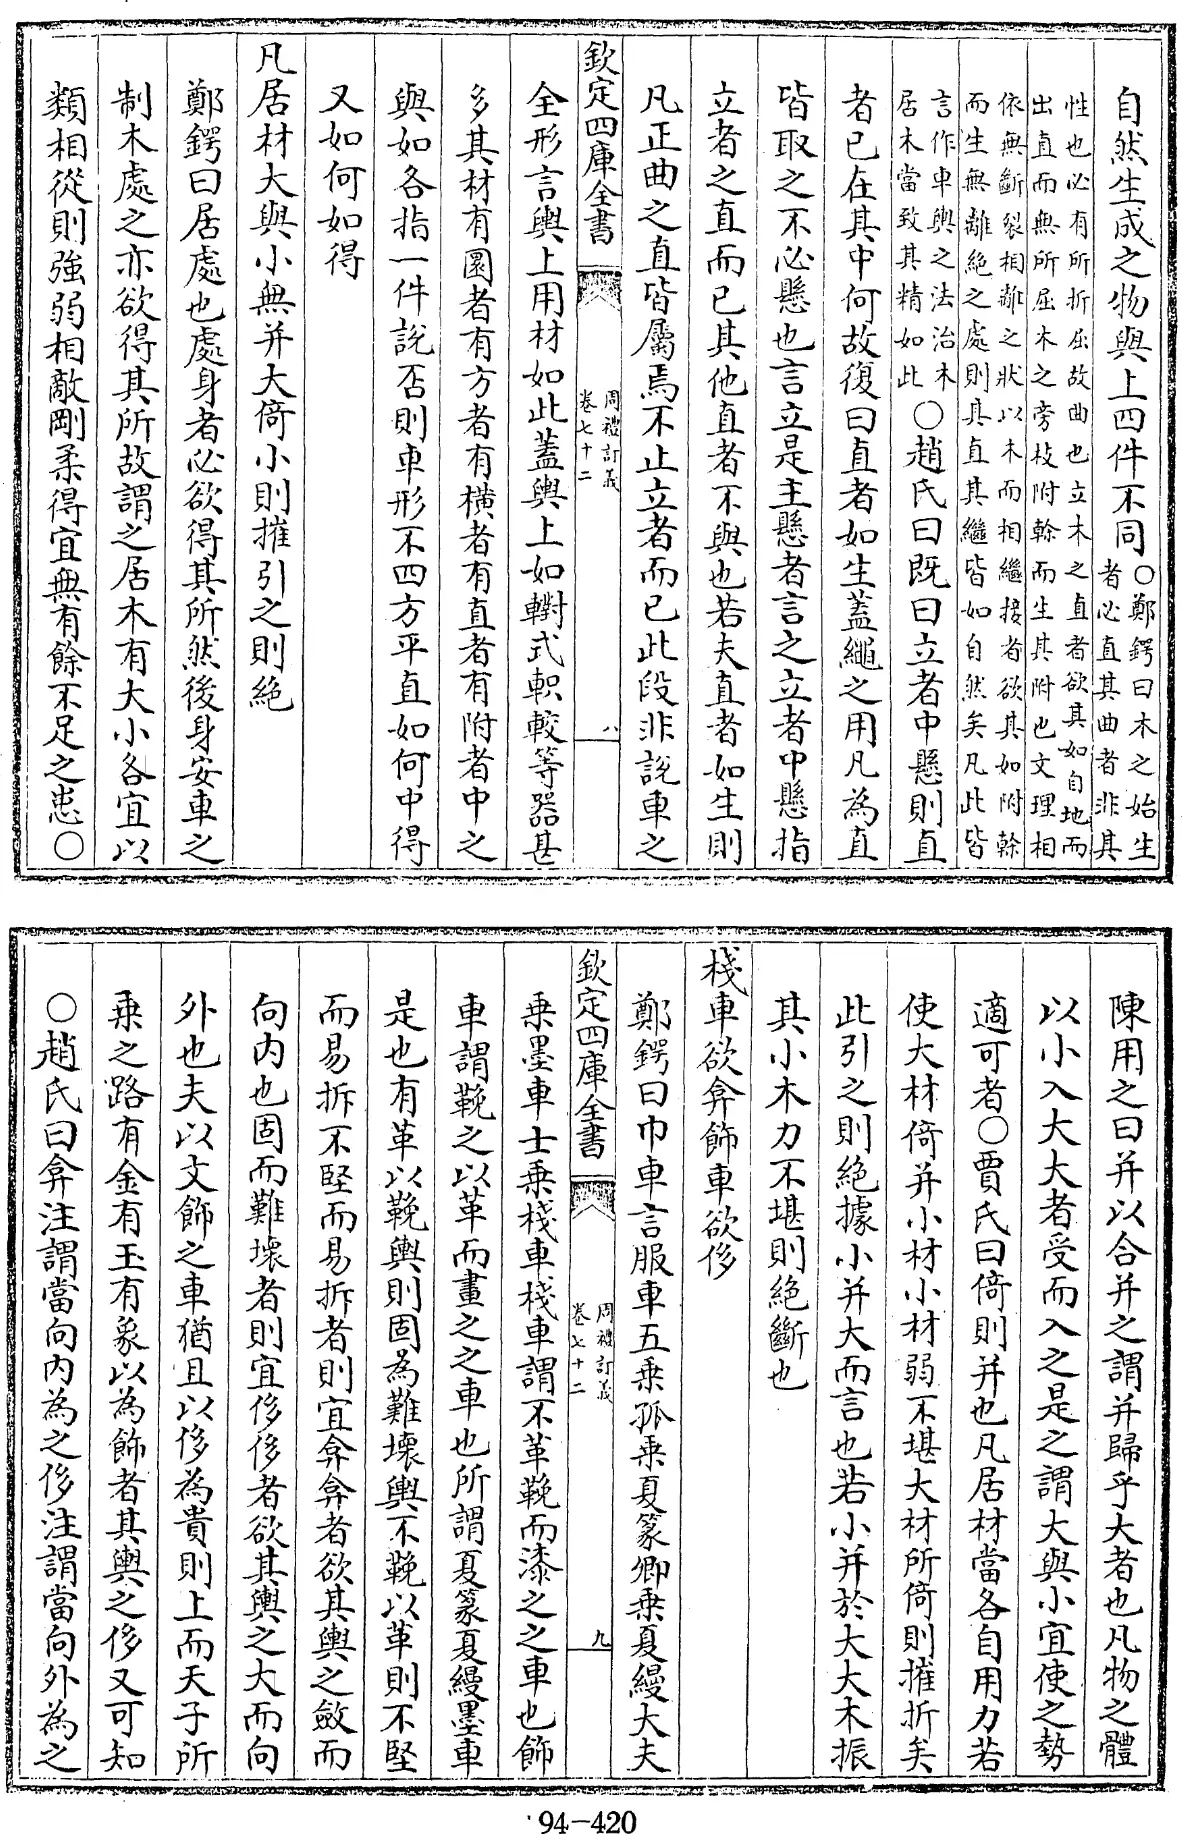 自然生成之物與上四件不同○鄭鍔曰木之始生
者必直其曲者非其
性也必有所折屈故曲也立木之直者欲其如自地而
出直而無所屈木之旁枝附榦而生其附也文理相
依無斷裂相離之狀以木而相繼接者欲其如附榦
而生無離絶之處則其直其繼皆如自然矣凡此皆
言作車輿之法治木
居木當致其精如此○趙氏曰既曰立者中懸則直
者已在其中何故復曰直者如生蓋繩之用凡為直
皆取之不必懸也言立是主懸者言之立者中懸指
立者之直而已其他直者不與也若夫直者如生則
凡正曲之直皆屬焉不止立者而已此段非說車之
欽定四庫全書
周禮訂義
卷七十二
八
全形言輿上用材如此蓋輿上如轛式軹較等器甚
多其材有圜者有方者有横者有直者有附者中之
與如各指一件說否則車形不四方平直如何中得
又如何如得
凡居材大與小無并大倚小則摧引之則絶
鄭鍔曰居處也處身者必欲得其所然後身安車之
制木處之亦欲得其所故謂之居木有大小各宜以
類相從則強弱相敵剛柔得宜無有餘不足之患○
陳用之曰并以合并之謂并歸乎大者也凡物之體
以小入大大者受而入之是之謂大與小宜使之勢
適可者○賈氏曰倚則并也凡居材當各自用力若
使大材倚并小材小材弱不堪大材所倚則摧折矣
此引之則絶據小并大而言也若小并於大大木振
其小木力不堪則絶斷也
棧車欲弇飾車欲侈
鄭鍔曰巾車言服車五乗孤乗夏篆卿乗夏縵大夫
欽定四庫全書
周禮訂義
卷七十二
九
乗墨車士乗棧車棧車謂不革鞔而漆之之車也飾
車謂鞔之以革而畫之之車也所謂夏篆夏縵墨車
是也有革以鞔輿則固為難壞輿不鞔以革則不堅
而易拆不堅而易拆者則宜弇弇者欲其輿之斂而
向内也固而難壞者則宜侈侈者欲其輿之大而向
外也夫以文飾之車猶且以侈為貴則上而天子所
乗之路有金有玉有象以為飾者其輿之侈又可知
○趙氏曰弇注謂當向内為之侈注謂當向外為之
94-420